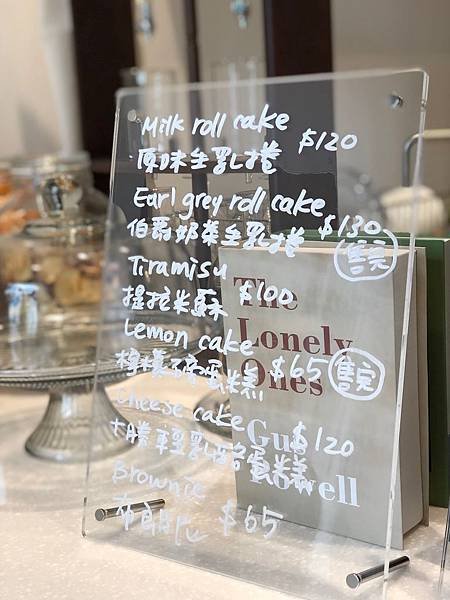 Milk roll cake $120
原味生乳捲
Earl grey roll cake
伯爵奶茶生乳捲 $130 售完
Tiramisu
提拉米蘇 $100
Lemon cake
檸檬磅蛋糕 $65 售完
Cheese cake $120
十勝輕乳酪蛋糕
Brownie
布朗尼 $65
The
Lonely
Ones
Gus
Powell